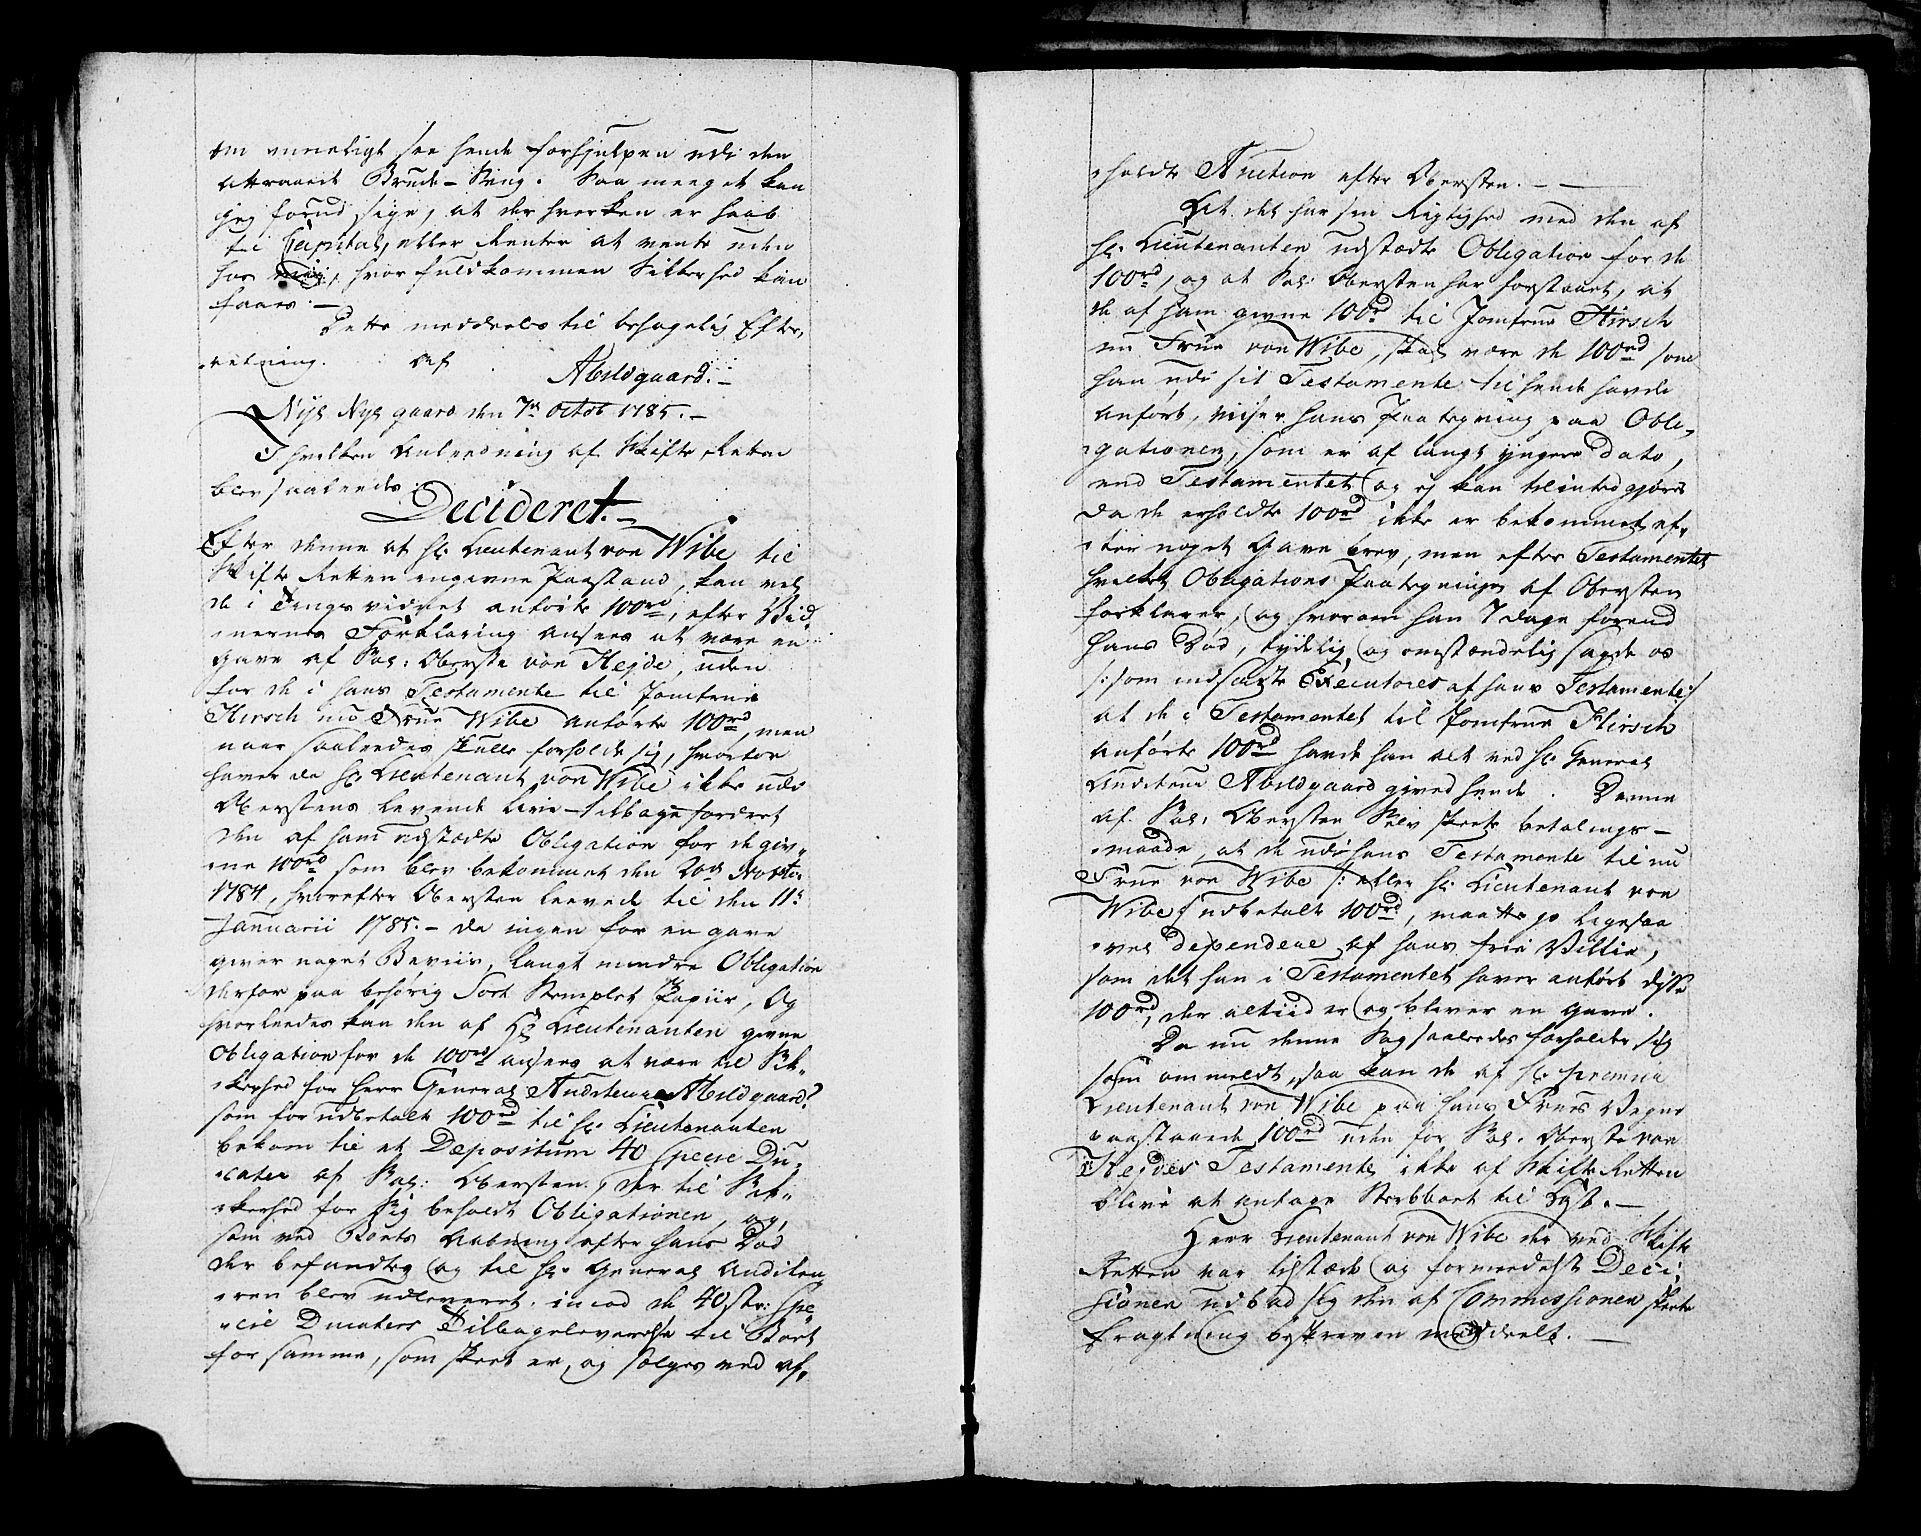 om mueligt saa hende forhjulpen udi den
attraaede Brude-Seng. Saa meeget kan
jeg forud sige, at der hverken er haab
til Capital, eller Renter at vente uden
hos mig, hvor fuldkommen Sikkerhed kan
faaes. —
Dette meddeeles til behagelig Efter,
retning. af
Abildgaard. —
Nye Nyegaard den 7de Octob 1785. —
I hvilken Anledning af Skifte Retten
blev saaledes
Decideret. —
Efter denne af Hr. Lieutenant von Wibe til
Skifte Retten indgivne Paastand, kan vel
de i Tings vidnet anførte 100rd, efter Vid,
nernes Forklaring ansees at være en
gave af Sal: Oberste von Hejde, uden
for de i hans Testamente til Jomfrue
Hirsch nu Frue Wibe anførte 100rd, men
naar saaleedes skulle forholde sig, hvorfor
haver da Hr Lieutenant von Wibe ikke udi
Oberstens levende Live tilbage fordret
den af ham udstædte Obligation for de giv,
ne 100rd som blev bekommet den 20de Novbr
1784, hvorefter Obersten leevede til den 11te
Januarii 1785. — da ingen for en gave
giver noget Beviis, langt mindre Obligation
derfor paa behørig Sort Stemplet Papiir, Og
hvorleedes kan den af Hr Lieutenanten givne
Obligation for de 100rd ansees at være til Sik,
kerhed for Herr General Auditeur Abildgaard?
som for udbetalt 100rd til Hr. Lieutenanten
bekom til et Depositum 40 Specie Du,
cater af Sal: Obersten, der til Sik,
kerhed for Sig beholdt Obligationen, og,
som ved Boets Aabning efter hans Død
der befandtes og til Hr. General Auditeu,
ren blev udleveret, imod de 40 st: Spe
cie Ducaters Tilbageleverelse til Boet
for samme, som skeet er, og sælges ved af,
holdte Auction efter Obersten. —
At det har sin Rigtighed med den af
Hr. Lieutenanten udstædte Obligation for de
100rd, og at Sal: Obersten har forstaaet, at
de af ham givne 100rd til Jomfrue Hirsch
nu Frue von Wibe, skal være de 100rd som
han udi sit Testamente til hende havde
anført, viiser hans Paategning paa Obli,
gationen, som er af langt yngere Dato,
end Testamentet og ej kan tilintedgjøres
da de erholdte 100rd ikke er bekommet ef,
ter noget Gave brev, men efter Testamentet
hvilket Obligations Paategninger af Obersten
forklarer, og hvorom han 7 dage forend
hans Død, tydelig og omstændelig sagde os
/: som indsatte Executores af hans Testamente :/
at de i Testamentet til Jomfrue Hirsch
anførte 100rd havde han alt ved Hr. General
Auditeur Abildgaard given hende. Denne
af Sal: Obersten Selv skeete betalings-
maade, at de udi hans Testamente til nu
Frue von Wibe /: eller Hr. Lieutenant von
Wibe :/ udbetalt 100rd, maatte jo ligesaa
vel dependere af hans frie Villie,
som det han i Testamentet haver anført disse
100rd, der altiid er og bliver en Gave.
Da nu denne Sag saaleedes forholder sig
som ommeldt, saa kan de af Hr. premier
Lieutenant von Wibe paa hans Frues Vegne
paastaaede 100rd uden for Sal. Oberste von
Hejdes Testamente, ikke af Skifte Retten
blive at antage Sterbboet til Last. —
Herr Lieutenant von Wibe der ved Skifte
Retten var tilstæde og formeedelst Deci,
sionen udbad sig den af Commissionen skeete
fragtning beskreven meddeelt. —